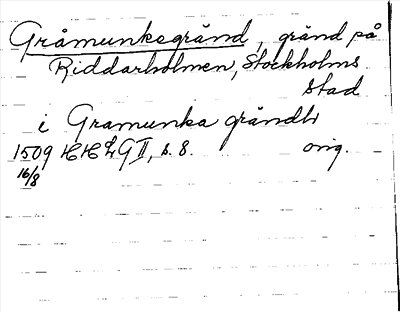 Gråmunksgränd, gränd på
Riddarholmen, Stockholms
stad
i Gramunka gråndh
1509 HH G II, s. 8. orig.
16/8